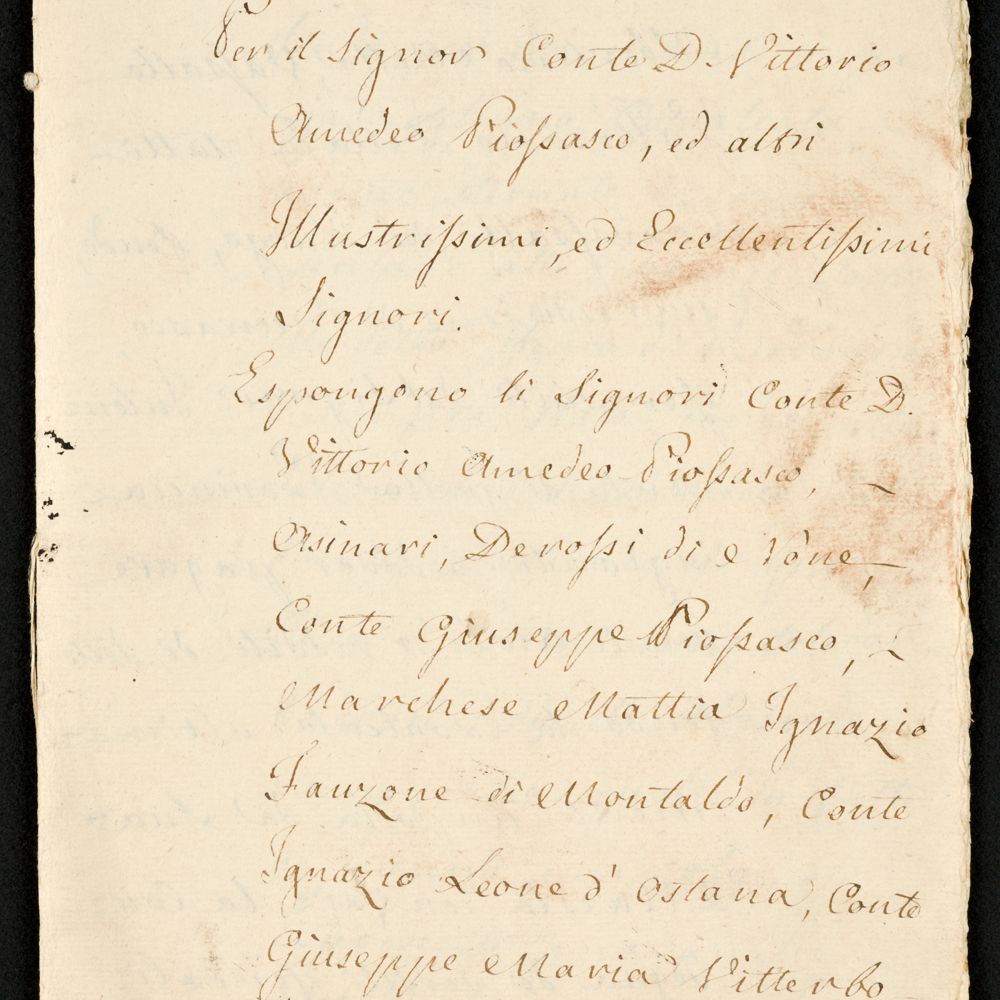 Per il Signor Conte D. Vittorio
Amedeo Piossasco, ed altri
Illustrissimi, ed Eccellentissimi
Signori.
Espongono li Signori Conte D.
Vittorio Amedeo Piossasco,
Asinari, Derossi di e None,
Conte Giuseppe Piossasco,
Marchese Mattia Ignazio
Fauzone di Montaldo, Conte
Ignazio Leone d' Ostana, Conte
Giuseppe Maria Vitterbo